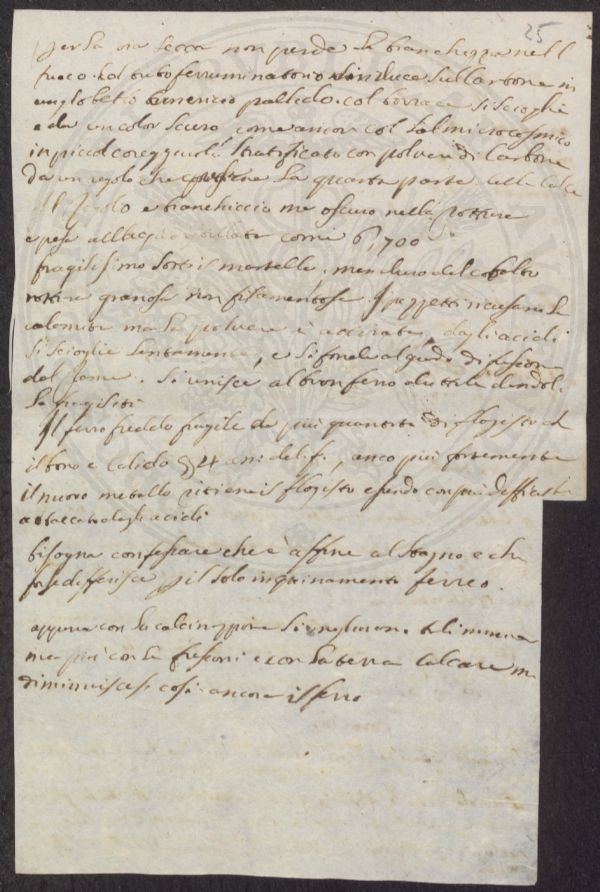 25
per la via secca non perde la bianchezza nell
fuoco. Col tubo ferruminatorio si riduce sul Carbone in
un globetto cenericio pallido. col borrace si scioglie
e da un color scuro come ancora col Sal microcosmico
in piccol coreggiuolo stratificato con polvere di Carbone
da un regolo che la quarta parte della Calce
Il Regolo e bianchiccio ma oscuro nella rottura
e pesa all'acqua come 6,700
fragilissimo sotto il martello, men duro del cobalto
rottura granosa non filamentosa I pezzetti ricusano la
calamita ma la polvere è attirata, dagli acidi
si scioglie lentamente, e si fonde al grado di fusione
del rame. Si unisce al buon ferro duttile dandoli
la fragilità
Il ferro freddo fragile da più quantità di flogisto ch
il bono e calido 4 anco più fortemente
il nuovo metallo ritiene il flogisto essendo con più difficoltà
attaccato dagli acidi
bisogna confessare che è affine al stagno e che
forse differisce p il solo inquinamento ferreo.
appena con la calcinazione si diminuisce
ma più con la fusione e con la terra calcare
diminuiscesi così ancora il ferro